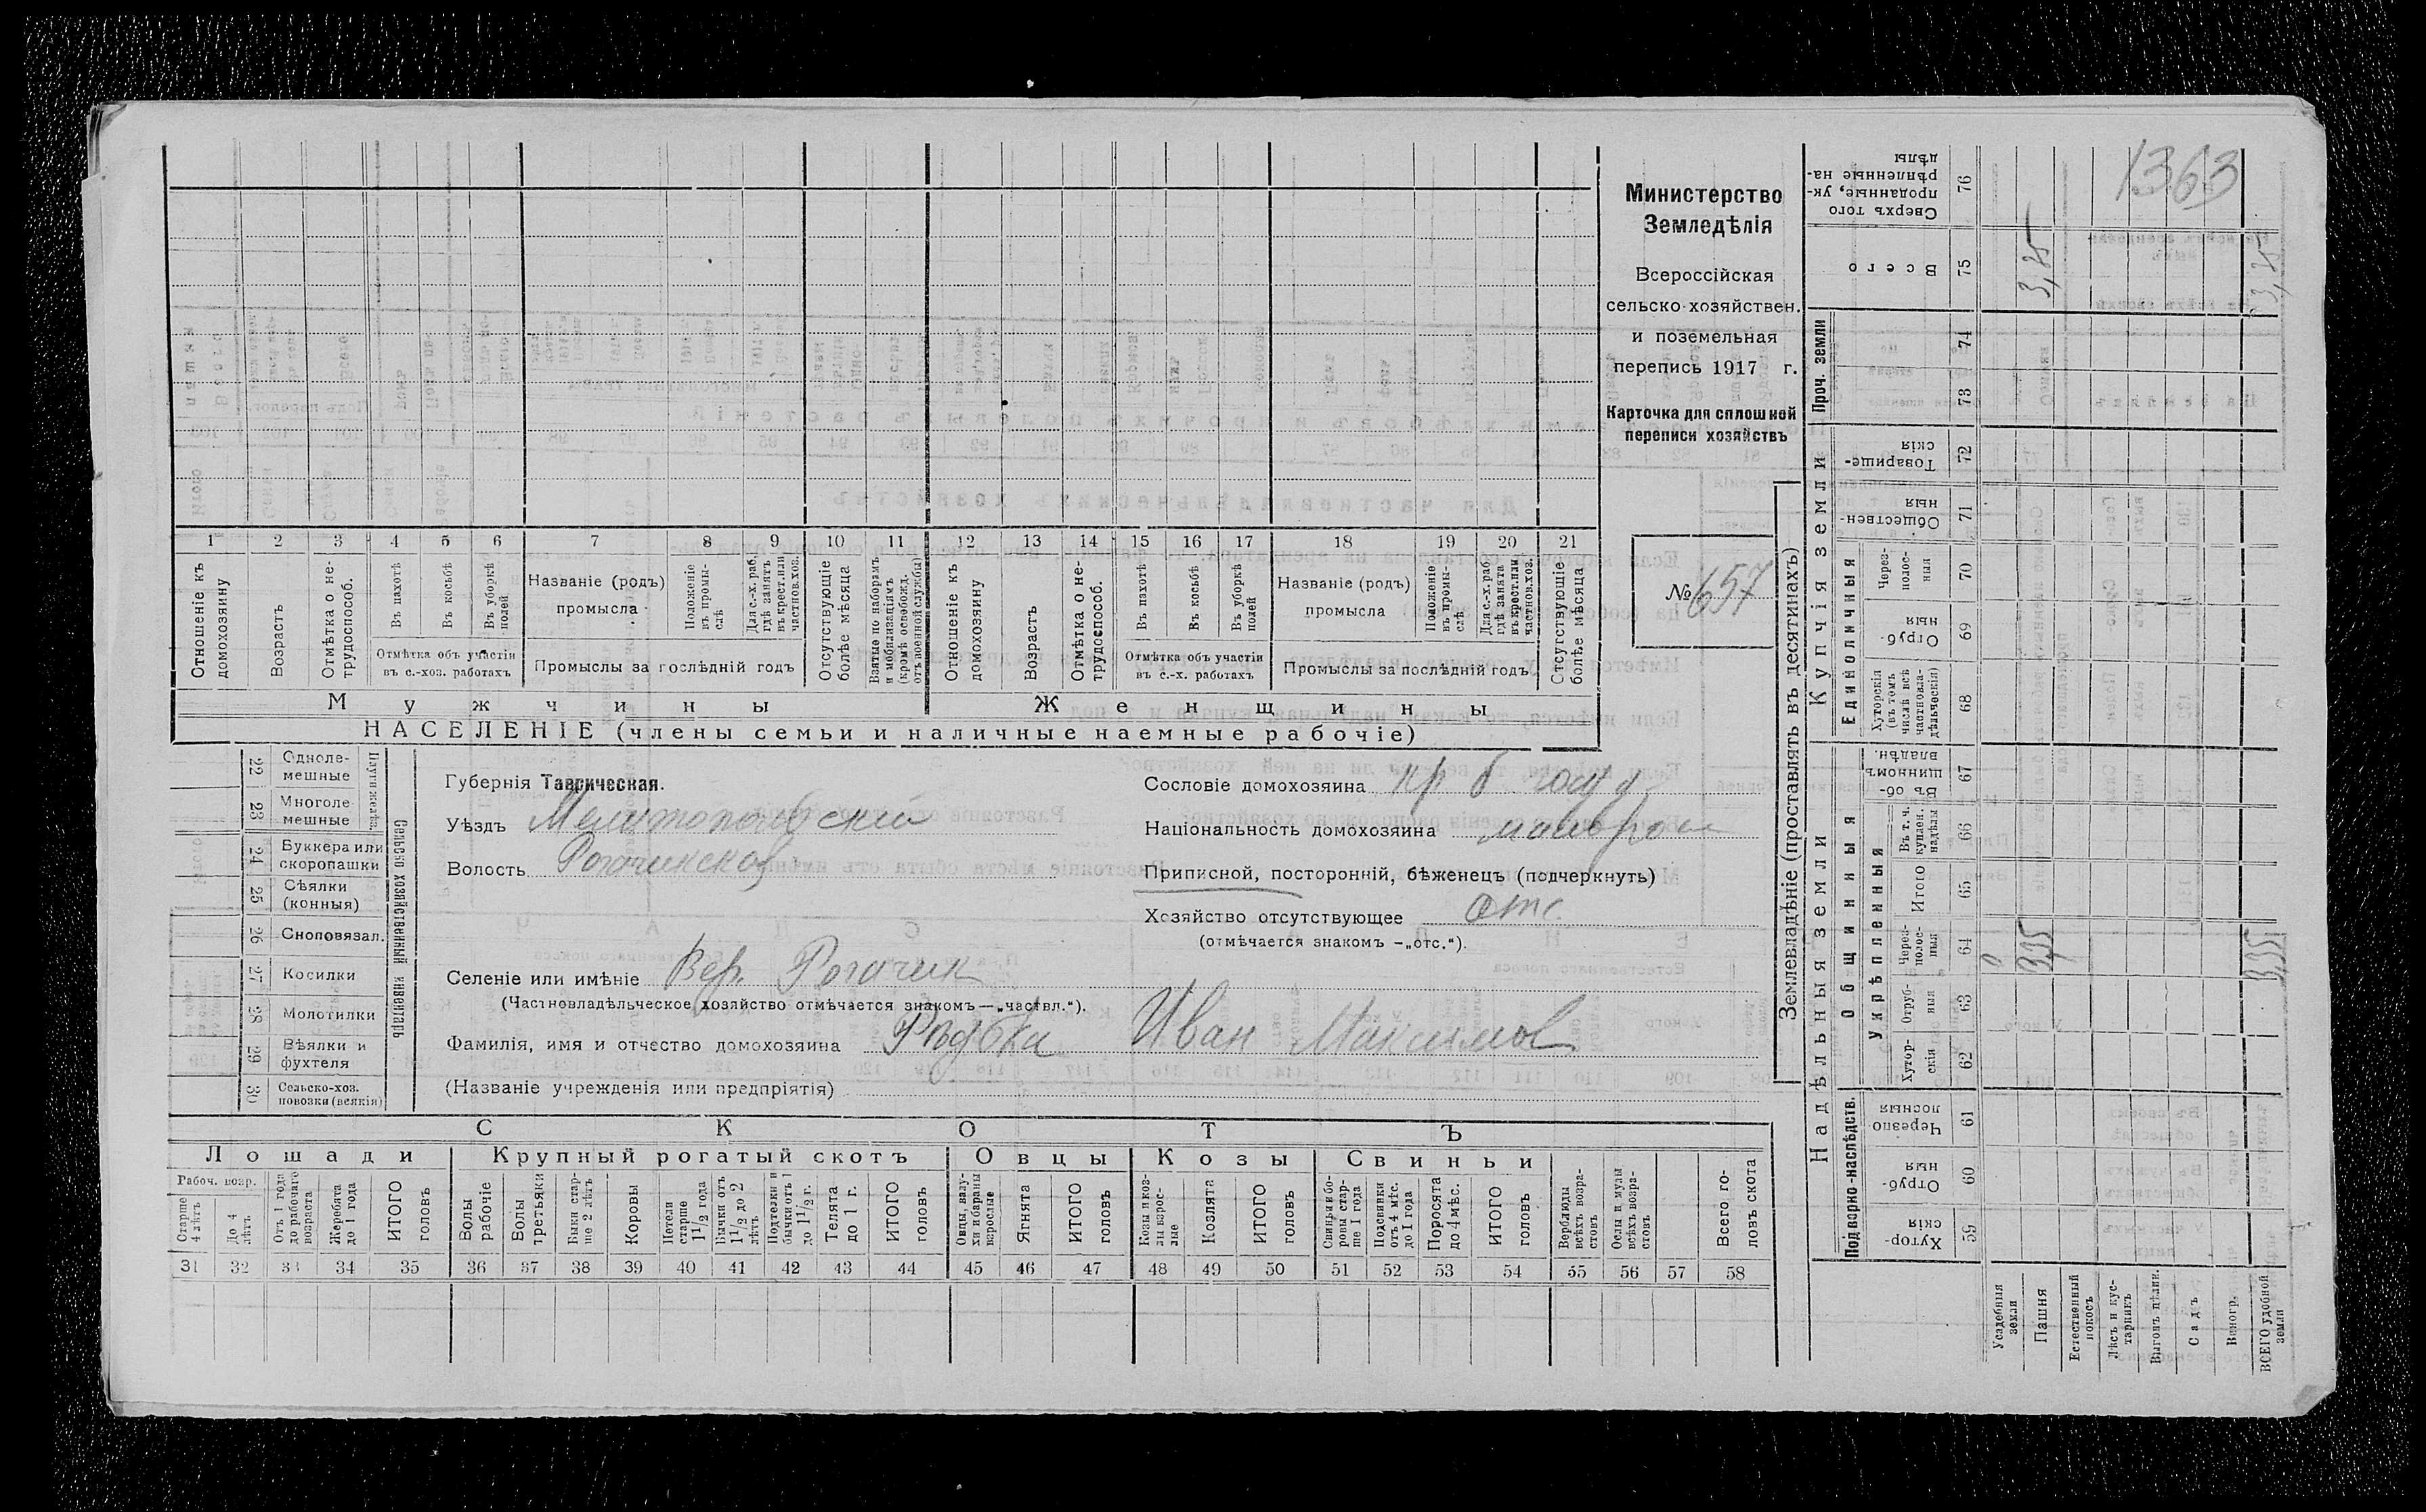 1363
Министерство
Земледѣлія
Всероссійская
сельско-хозяйствен.
и поземельная
перепись 1917 г.
Карточка для сплошной
переписи хозяйствъ
№ 657
1 2 3 4 5 6 7 8 9 10 11 12 13 14 15 16 17 18 19 20 21
Отношеніе къ домохозяину
Возрастъ
Отмѣтка о нетрудоспособ.
Въ пахотѣ
Въ косьбѣ
Въ уборкѣ полей
Отмѣтка объ участіи
въ с.-хоз. работахъ
Названіе (родъ)
промысла
Положеніе въ промыслѣ
Для с.-х. раб. гдѣ занятъ въ крест. или частнов. хоз.
Промыслы за послѣдній годъ
Отсутствующіе болѣе мѣсяца
Взятые по наборамъ и мобилизаціямъ (кромѣ освобожд. отъ военной службы)
Отношеніе къ домохозяину
Возрастъ
Отмѣтка о нетрудоспособ.
Въ пахотѣ
Въ косьбѣ
Въ уборкѣ полей
Отмѣтка объ участіи
въ с.-х. работахъ
Названіе (родъ)
промысла
Положеніе въ промыслѣ
Для с.-х. раб. гдѣ занята въ крест. или частнов. хоз.
Промыслы за послѣдній годъ
Отсутствующіе болѣе мѣсяца
Мужчины Женщины
НАСЕЛЕНІЕ (члены семьи и наличные наемные рабочіе)
Сельско хозяйственный инвентарь
Плуги желѣз.
22 Одноле-
мешные
23 Многоле
мешные
24 Буккера или
скоропашки
25 Сѣялки
(конныя)
26 Сноповязал.
27 Косилки
28 Молотилки
29 Вѣялки и
фухтеля
30 Сельско-хоз.
повозки (всякія)
Губернія Таврическая.
Уѣздъ Мелитопольскій
Волость Рогачикская
Сословіе домохозяина кр б
Національность домохозяина малорос
Приписной, посторонній, бѣженецъ (подчеркнуть)
Хозяйство отсутствующее Отс.
(отмѣчается знакомъ —„отс.“).
Селеніе или имѣніе Вер. Рогачик
(Частновладѣльческое хозяйство отмѣчается знакомъ—„частвл.“).
Фамилія, имя и отчество домохозяина Иван Максимов
(Названіе учрежденія или предпріятія)
СКОТЪ
Лошади Крупный рогатый скотъ Овцы Козы Свиньи
Рабоч. возр.
Старше 4 лѣтъ
До 4 лѣтъ
Отъ 1 года до рабочаго возраста
Жеребята до 1 года
ИТОГО головъ
Волы рабочіе
Волы третьяки
Быки старше 2 лѣтъ
Коровы
Нетели старше 1 1/2 года
Бычки отъ 1 1/2 до 2 лѣтъ
Подтелки и бычки отъ 1 до 1 1/2 г.
Телята до 1 г.
ИТОГО головъ
Овцы, валухи и бараны взрослые
Ягнята
ИТОГО головъ
Козы и козлы взрослые
Козлята
ИТОГО головъ
Свиньи и боровы старше 1 года
Подсвинки отъ 4 мѣс. до 1 года
Поросята до 4 мѣс.
ИТОГО головъ
Верблюды всѣхъ возрастовъ
Ослы и мулы всѣхъ возрастовъ
Всего головъ скота
31 32 33 34 35 36 37 38 39 40 41 42 43 44 45 46 47 48 49 50 51 52 53 54 55 56 57 58
Землевладѣніе (проставлять въ десятинахъ)
Надѣльныя земли
Купчія земли
Проч. земли
Подворно-наслѣдств.
Общинныя
Укрѣпленныя
Единоличныя
Хуторскія 59
Отрубныя 60
Черезполосныя 61
Хуторскія 62
Отрубныя 63
Черезполосныя 64
Итого 65
Въ т. ч. куплен. надѣлы 66
Въ общинномъ владѣн. 67
Хуторскія (въ томъ числѣ всѣ частновладѣльческія) 68
Отрубныя 69
Черезполосныя 70
Общественныя 71
Товарищескія 72
73
74
Всего 75
Сверхъ того проданные, укрѣпленные надѣлы 76
Усадебныя земли
Пашня
Естественный покосъ
Лѣсъ и кустарникъ
Выгонъ цѣлин.
Садъ
Виногр.
ВСЕГО удобной земли